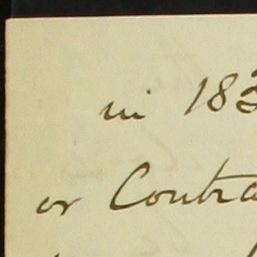 in 183
or Contra